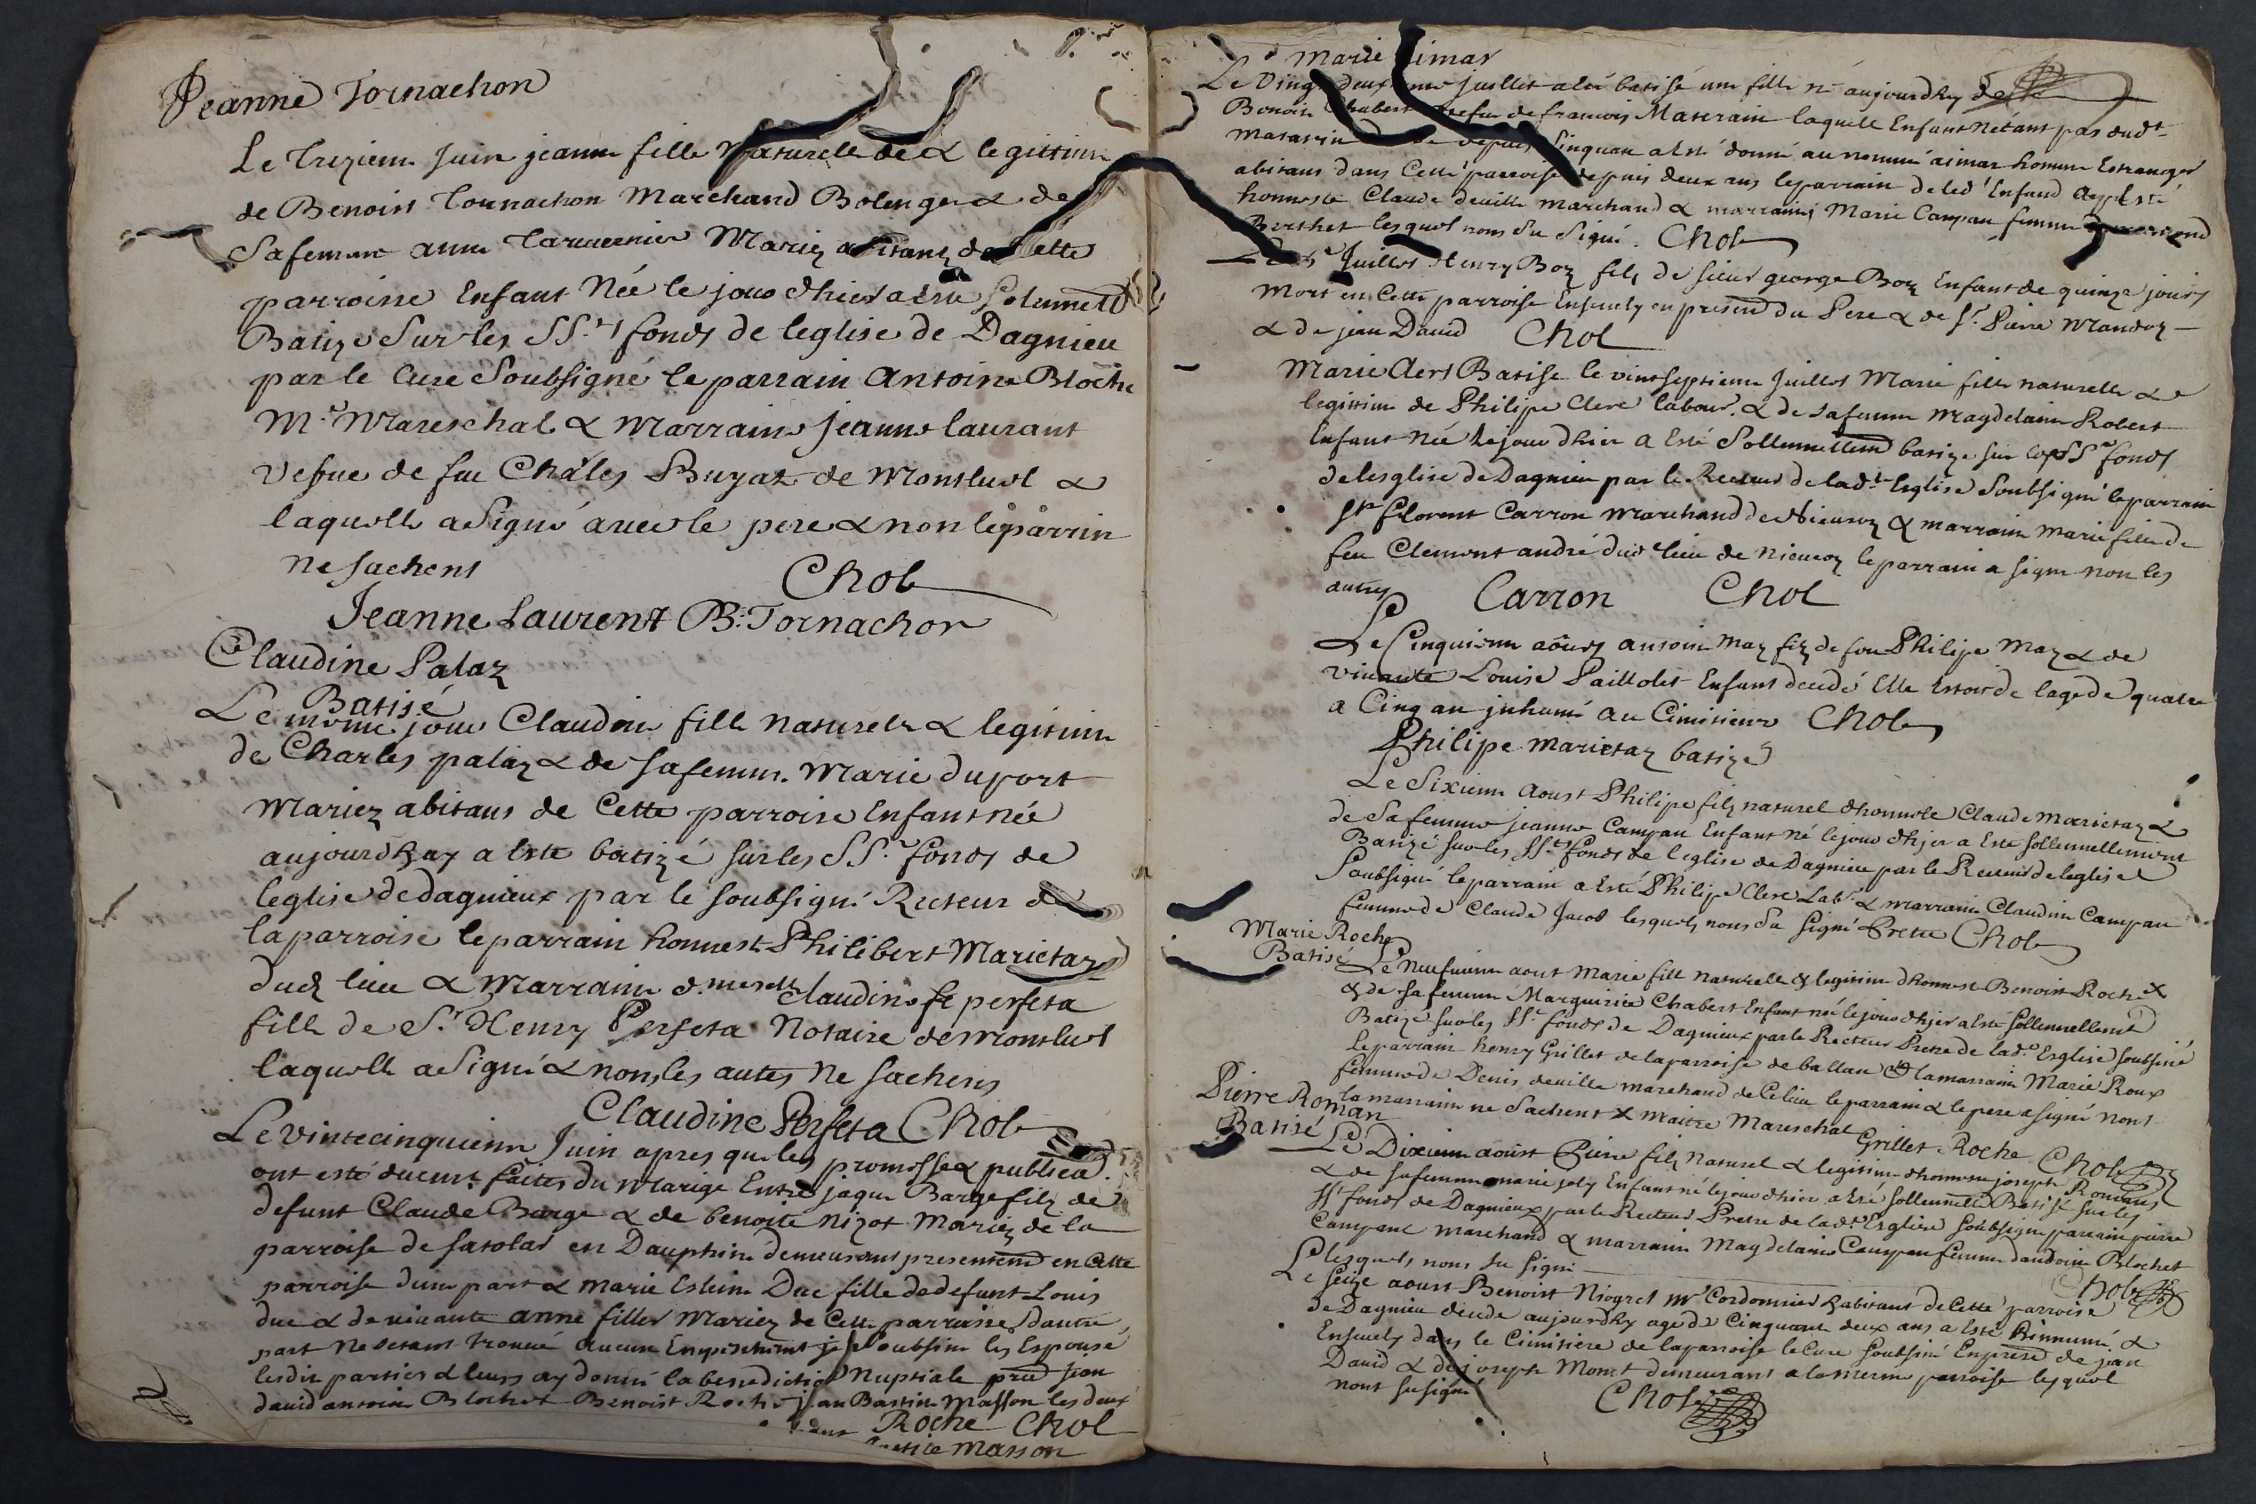 Jeanne Tornachon
Le Trezieme Juin jeanne fille naturelle de & legittime
de Benoist Tornachon Marchand Bolenger & de
sa femme anne Mariez abitans de Cette
parroisse Enfant Née le jour dhier a este solemnelt
Batizé Sur les SS.ts fonds de leglise de Dagnieu
par le Cure Soubsigné le parrain Antoine Bloche
M.e Mareschal & Marraine Jeanne laurant
vefue de feu Châles Buyat de Montluel &
laquelle a Signé avec le pere & non le parrin
ne sachent Chol
Jeanne Laurent B: Tornachon
Claudine Palaz
Batisé
Le meme jour Claudine fille naturele & legitime
de Charles palaz & de sa femme Marie duport
Mariez abitans de Cette parroise Enfant née
aujourdhuy a este batizé sur les SS.ts fonds de
leglise de dagnieux par le soubsigné Recteur de
la parroise le parrain honneste Philibert Marietaz
dud lieu & Marraine d.moiselle Claudine fe perfeta
fille de S.r Henry Perfeta Notaire de Montluel
laquelle a Signé & non les autres Ne sachens
Claudine Perfeta Chol
Le vintecinquieme Juin apres que les promesse & publica.
ont esté duement faites du Mariage Entre jaque Barge filz de
defunt Claude Barge & de benoite nizot Mariez de la
parroise de satolas en Dauphine demeurant presentemt en Cette
parroise dune part & Marie Duc fille de defunt Louis
duc & de vivante anne filler Mariez de Cette parroisse dautre
part Ne sestant trouué aucun Empeschement je soubsiné les Espousé
lesdit parties & leurs ay donné la benediction Nuptiale prnt jean
david antoine Blochet Benoist Roche jean Basti Masson les deux
Roche Chol
Masson
Marie aimar
Le Vingt deuxieme juillet a été batisé une fille né aujourdhy de
Benoite Chabert vefue de francois Materain laquelle Enfant Nétant pas dudt
Matarin depuis Cinquan a esté donné au nommé aimar homme Estranger
abitans dans Cette parroise depuis deux ans le parrain de led Enfand ayant esté
honneste Claude deuille marchand & marraine Marie Campan femme
Berthet lesquel nons su signé. Chol
Juillet Henry Boy filz de sieur george Boy Enfant de quinze jours
Mort en Cette parroise Ensevely en present du Pere & de s.r Pierre Mandoz
& de jean David Chol
Marie Clert Batise le vintseptieme Juillet Marie fille naturelle &
legitime de Philipe Clerc labour. & de sa femme Magdelaine Robert
Enfant née le jour dhier a Esté Sollemnellemt batize sur les SS fonds
de lesglise de Dagnieu par le Recteur de lad.te Esglise Soubsigné le parrain
s.r Florent Carron Marchand de Nieuroz & marraine Marie fille de
feu Clement andré dud lieu de Nieuroz le parrain a signe non les
autres Carron Chol
Le Cinquieme aoust antoine May filz de feu Philipe May & de
vivante Louise Paillolet Enfant decedé Elle Estoit de lage de quatre
a Cinq an inhumé au Cimitiere Chol
Philipe marietaz batizé
Le Sixieme Aoust Philipe filz naturel dhonneste Claude Marietaz &
de Sa femme jeanne Campan Enfant né le jour dhier a Esté sollennellement
Batizé sur les SS.ts fonds de leglise de Dagnieu par le Recteur de leglise
Soubsigné le parrain a Esté Philipe Clerc Lab.r & marraine Claudine Campan
femme de Claude Jacob lesquels nons su signé Pretre Chol
Marie Roche
Batisé
Le Neufieme aout Marie fille naturelle & legitime dhonnest Benoist Roche x
& de sa femme Marguirite Chabert Enfant née le jour dhier a Esté sollennellemt
Batizé sur les SS.ts fonds de Dagnieux par le Recteur Pretre de lad.te Esglise soubsiné
le parrain henry Grillet de la parroise de ballan & la marraine Marie Roux
femme de Denis deuille marchand de Ce lieu le parrain & le pere a signé nont
la marraine ne Sachent x maitre Mareschal Grillet Roche Chol
Pierre Roman
Batisé
Le Dixieme aoust Pierre filz naturel & legitime dhonneste joseph Romans
& de sa femme marie joly Enfant né le jour dhier a Esté sollennelle Batisé sur les
SS.ts fonds de Dagnieux par le Recteur Pretre de lad.te Esglise Soubsigne parrain pierre
Campant Marchand & marraine Magdelaine Campan femme dandoine Blochet
lesquels nons su signe Chol
Le seize aoust Benoist Niogret M.e Cordonnier habitant de Cette parroise
de Dagnieu decede aujourdhy agé de Cinquante deux ans a Esté hinnumé &
Ensevely dans le Cimitiere de la parroise le Cure Soubsiné En prese de jan
David & de joseph Monet demeurant a la meme parroise lesquel
nont su signé Chol